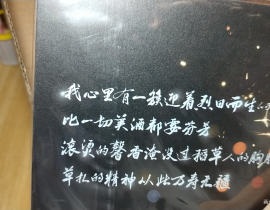 我心里有一簇迎着烈日而生的
比一切美酒都要芬芳
滚烫的馨香淹没过稻草人的胸膛
草扎的精神从此万寿无疆